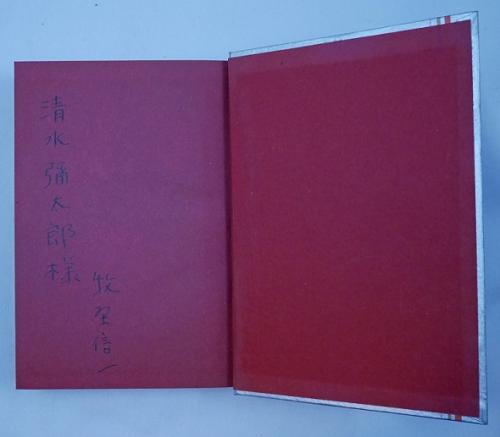 牧野信一
清水彌太郎様